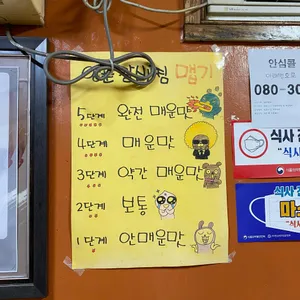 맵기
5단계 완전 매운맛
4단계 매운맛
3단계 약간 매운맛
2단계 보통
1단계 안매운맛
안심콜
080-30
식사
"식사